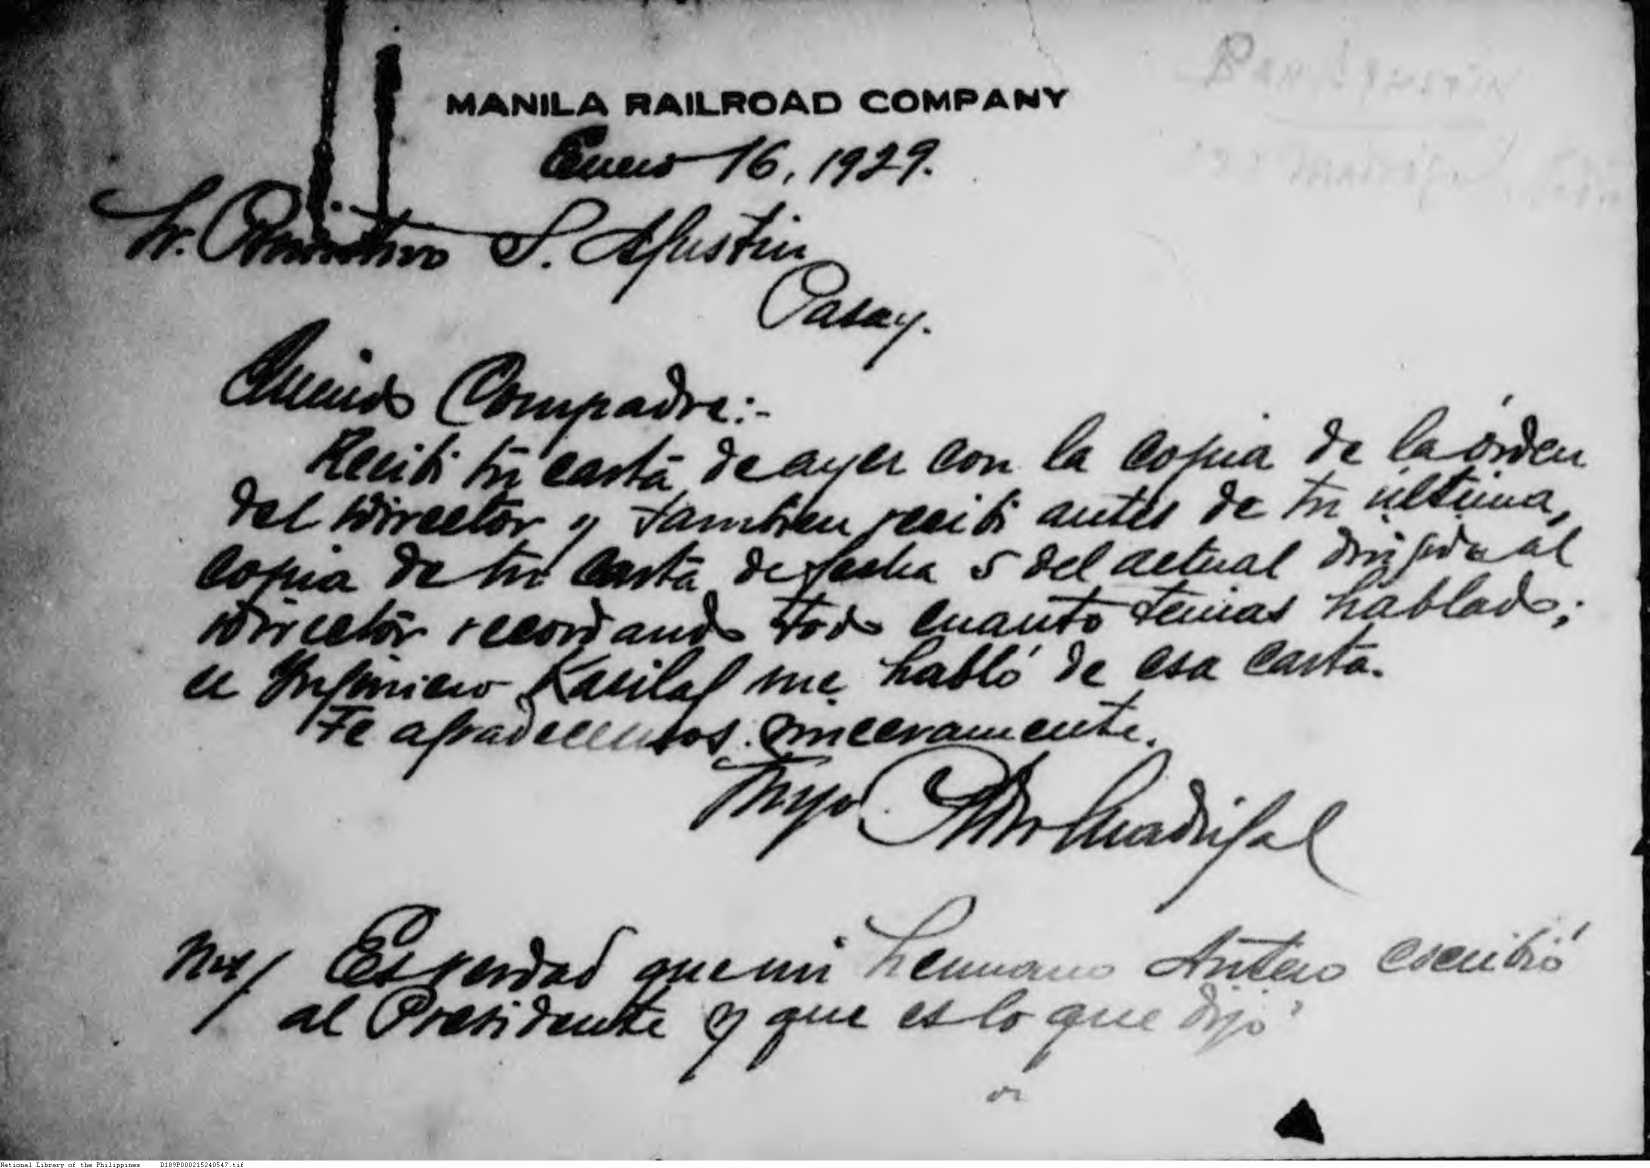 MANILA RAILROAD COMPANY
Enero 16, 1929.
Sr. Primitivo S. Agustin
Pasay.
Querido Compadre:-
Recibi tu carta de ayer con la copia de la órden
del Director y tambien recibi antes de tu última,
copia de tu carta de fecha 5 del actual dirigida al
Director recordando todo cuanto tenias hablado;
el Ingeniero Kasilag me habló de esa carta.
Te agradecemos sinceramente.
Tuyo Pedro Madrigal
Es verdad que mi hermano Antero escribió
al Presidente y que es lo que dijó
National Library of the Philippines D109P000215240547.tif